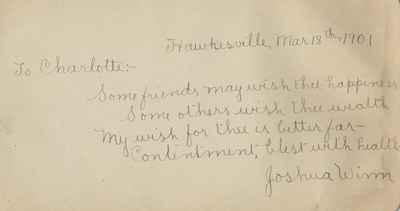 Hawkesville, Mar 18th, 1901
To Charlotte:-
Some friends may wish thee happiness
Some others wish thee wealth
My wish for thee is better far-
Contentment, blest with health
Joshua Winn